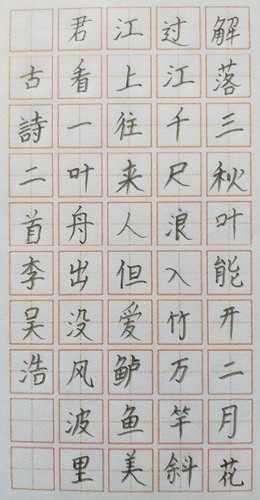 解落三秋叶能开二月花
过江千尺浪入竹万竿斜
江上往来人但爱鲈鱼美
君看一叶舟出没风波里
古詩二首李吴浩